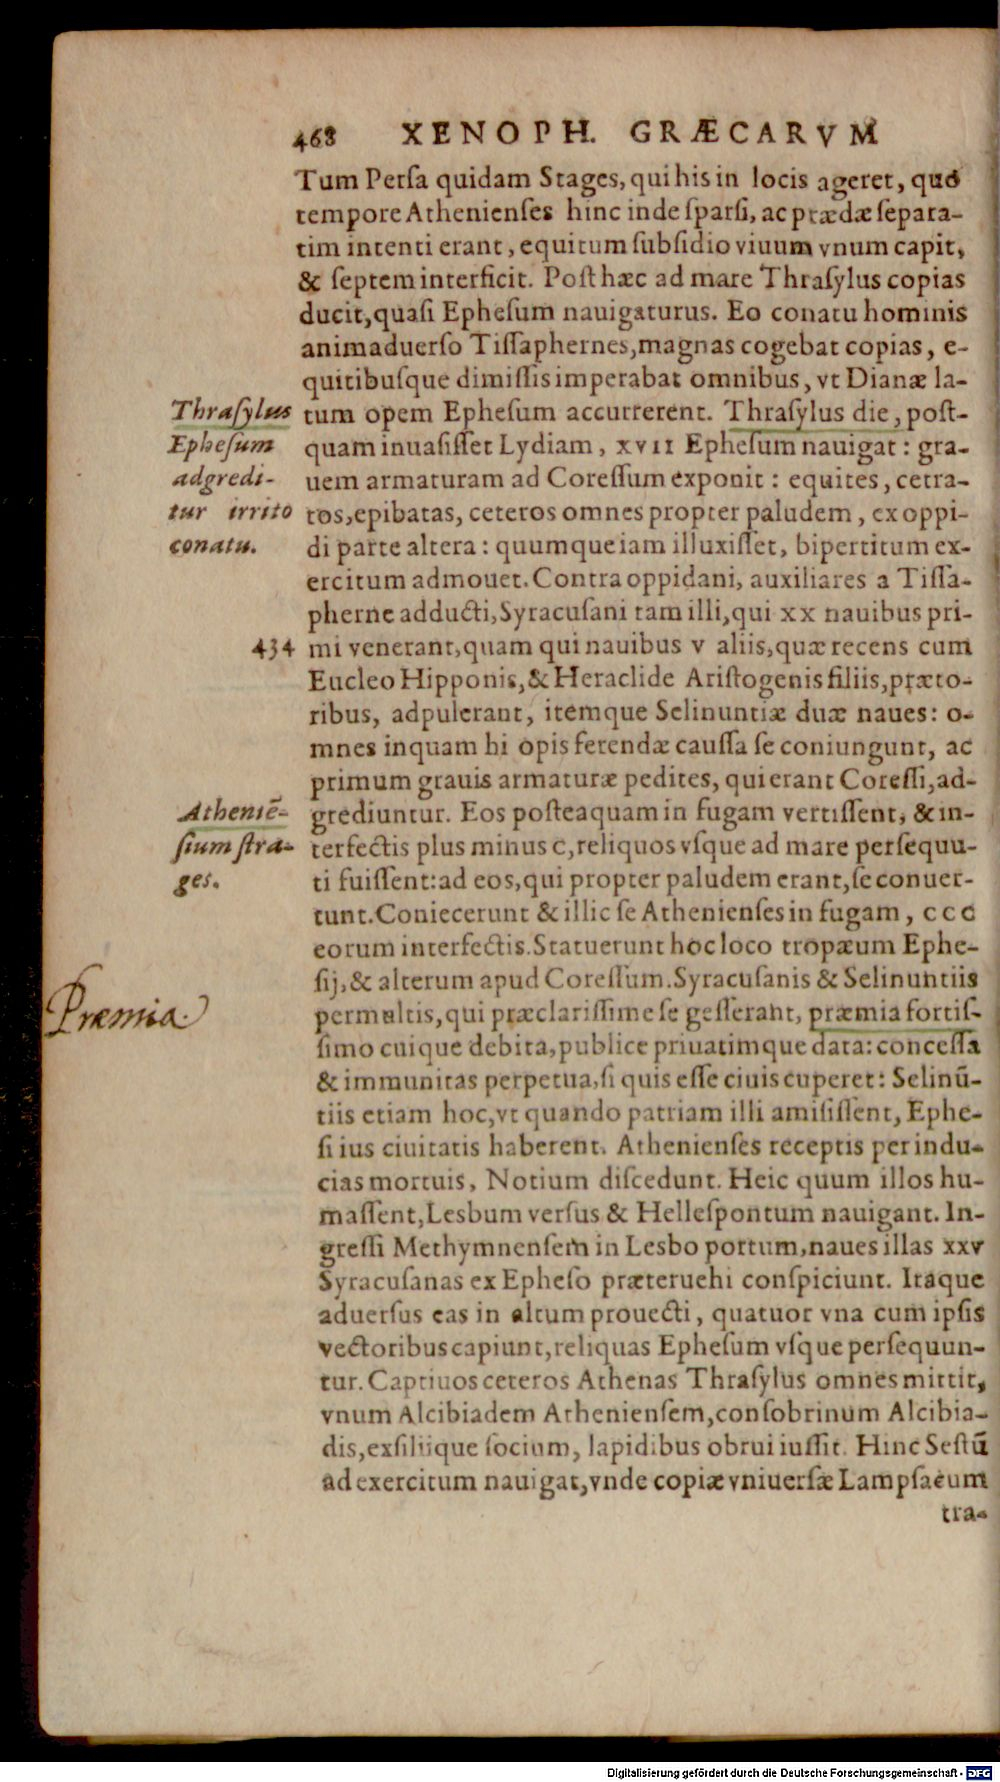 468 XENOPH. GRÆCARVM
Tum Persa quidam Stages, qui his in locis ageret, quo
tempore Athenienses hinc inde sparsi, ac prædæ separa-
tim intenti erant, equitum subsidio viuum vnum capit,
& septem interficit. Post hæc ad mare Thrasylus copias
ducit, quasi Ephesum nauigaturus. Eo conatu hominis
animaduerso Tissaphernes, magnas cogebat copias, e-
quitibusque dimissis imperabat omnibus, vt Dianæ la-
tum opem Ephesum accurrerent. Thrasylus die, post-
quam inuasisset Lydiam, XVII Ephesum nauigat: gra-
uem armaturam ad Coressum exponit: equites, cetra-
tos, epibatas, ceteros omnes propter paludem, ex oppi-
di parte altera: quumque iam illuxisset, bipertitum ex-
ercitum admouet. Contra oppidani, auxiliares a Tissa-
pherne adducti, Syracusani tam illi, qui XX nauibus pri-
mi venerant, quam qui nauibus V aliis, quæ recens cum
Eucleo Hipponis, & Heraclide Aristogenis filiis, præto-
ribus, adpulerant, itemque Selinuntiæ duæ naues: o-
mnes inquam hi opis ferendæ caussa se coniungunt, ac
primum grauis armaturæ pedites, qui erant Coressi, ad-
grediuntur. Eos posteaquam in fugam vertissent, & in-
terfectis plus minus C, reliquos vsque ad mare persequu-
ti fuissent: ad eos, qui propter paludem erant, se conuer-
tunt. Coniecerunt & illic se Athenienses in fugam, CCC
eorum interfectis. Statuerunt hoc loco tropæum Ephe-
sij, & alterum apud Coressum. Syracusanis & Selinuntiis
permultis, qui præclarissime se gesserant, præmia fortis-
simo cuique debita, publice priuatimque data: concessa
& immunitas perpetua, si quis esse ciuis cuperet: Selinū-
tiis etiam hoc, vt quando patriam illi amisissent, Ephe-
si ius ciuitatis haberent. Athenienses receptis per indu-
cias mortuis, Notium discedunt. Heic quum illos hu-
massent, Lesbum versus & Hellespontum nauigant. In-
gressi Methymnensem in Lesbo portum, naues illas XXV
Syracusanas ex Epheso præteruehi conspiciunt. Itaque
aduersus eas in altum prouecti, quatuor vna cum ipsis
vectoribus capiunt, reliquas Ephesum vsque persequun-
tur. Captiuos ceteros Athenas Thrasylus omnes mittit,
vnum Alcibiadem Atheniensem, consobrinum Alcibia-
dis, exsiliique socium, lapidibus obrui iussit. Hinc Sestū
ad exercitum nauigat, vnde copiæ vniuersæ Lampsacum
tra-
Thrasylus
Ephesum
adgredi-
tur irrito
conatu.
434
Atheniē-
sium stra-
ges.
Præmia.
Digitalisierung gefördert durch die Deutsche Forschungsgemeinschaft - DFG